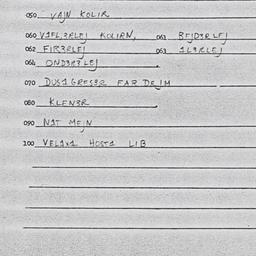 050 VAJN KOLIR
060 V1FL,3RLEJ KOLIRN, 061 BEJD3RLEJ
062 FIR3RLEJ 063 1L3RLEJ
064 OND3R3LEJ
070 DUS1GRES3R FAR DRIM
080 KLEN3R
090 N1T MEJN
100 VEL1X1 HOST1 LIB